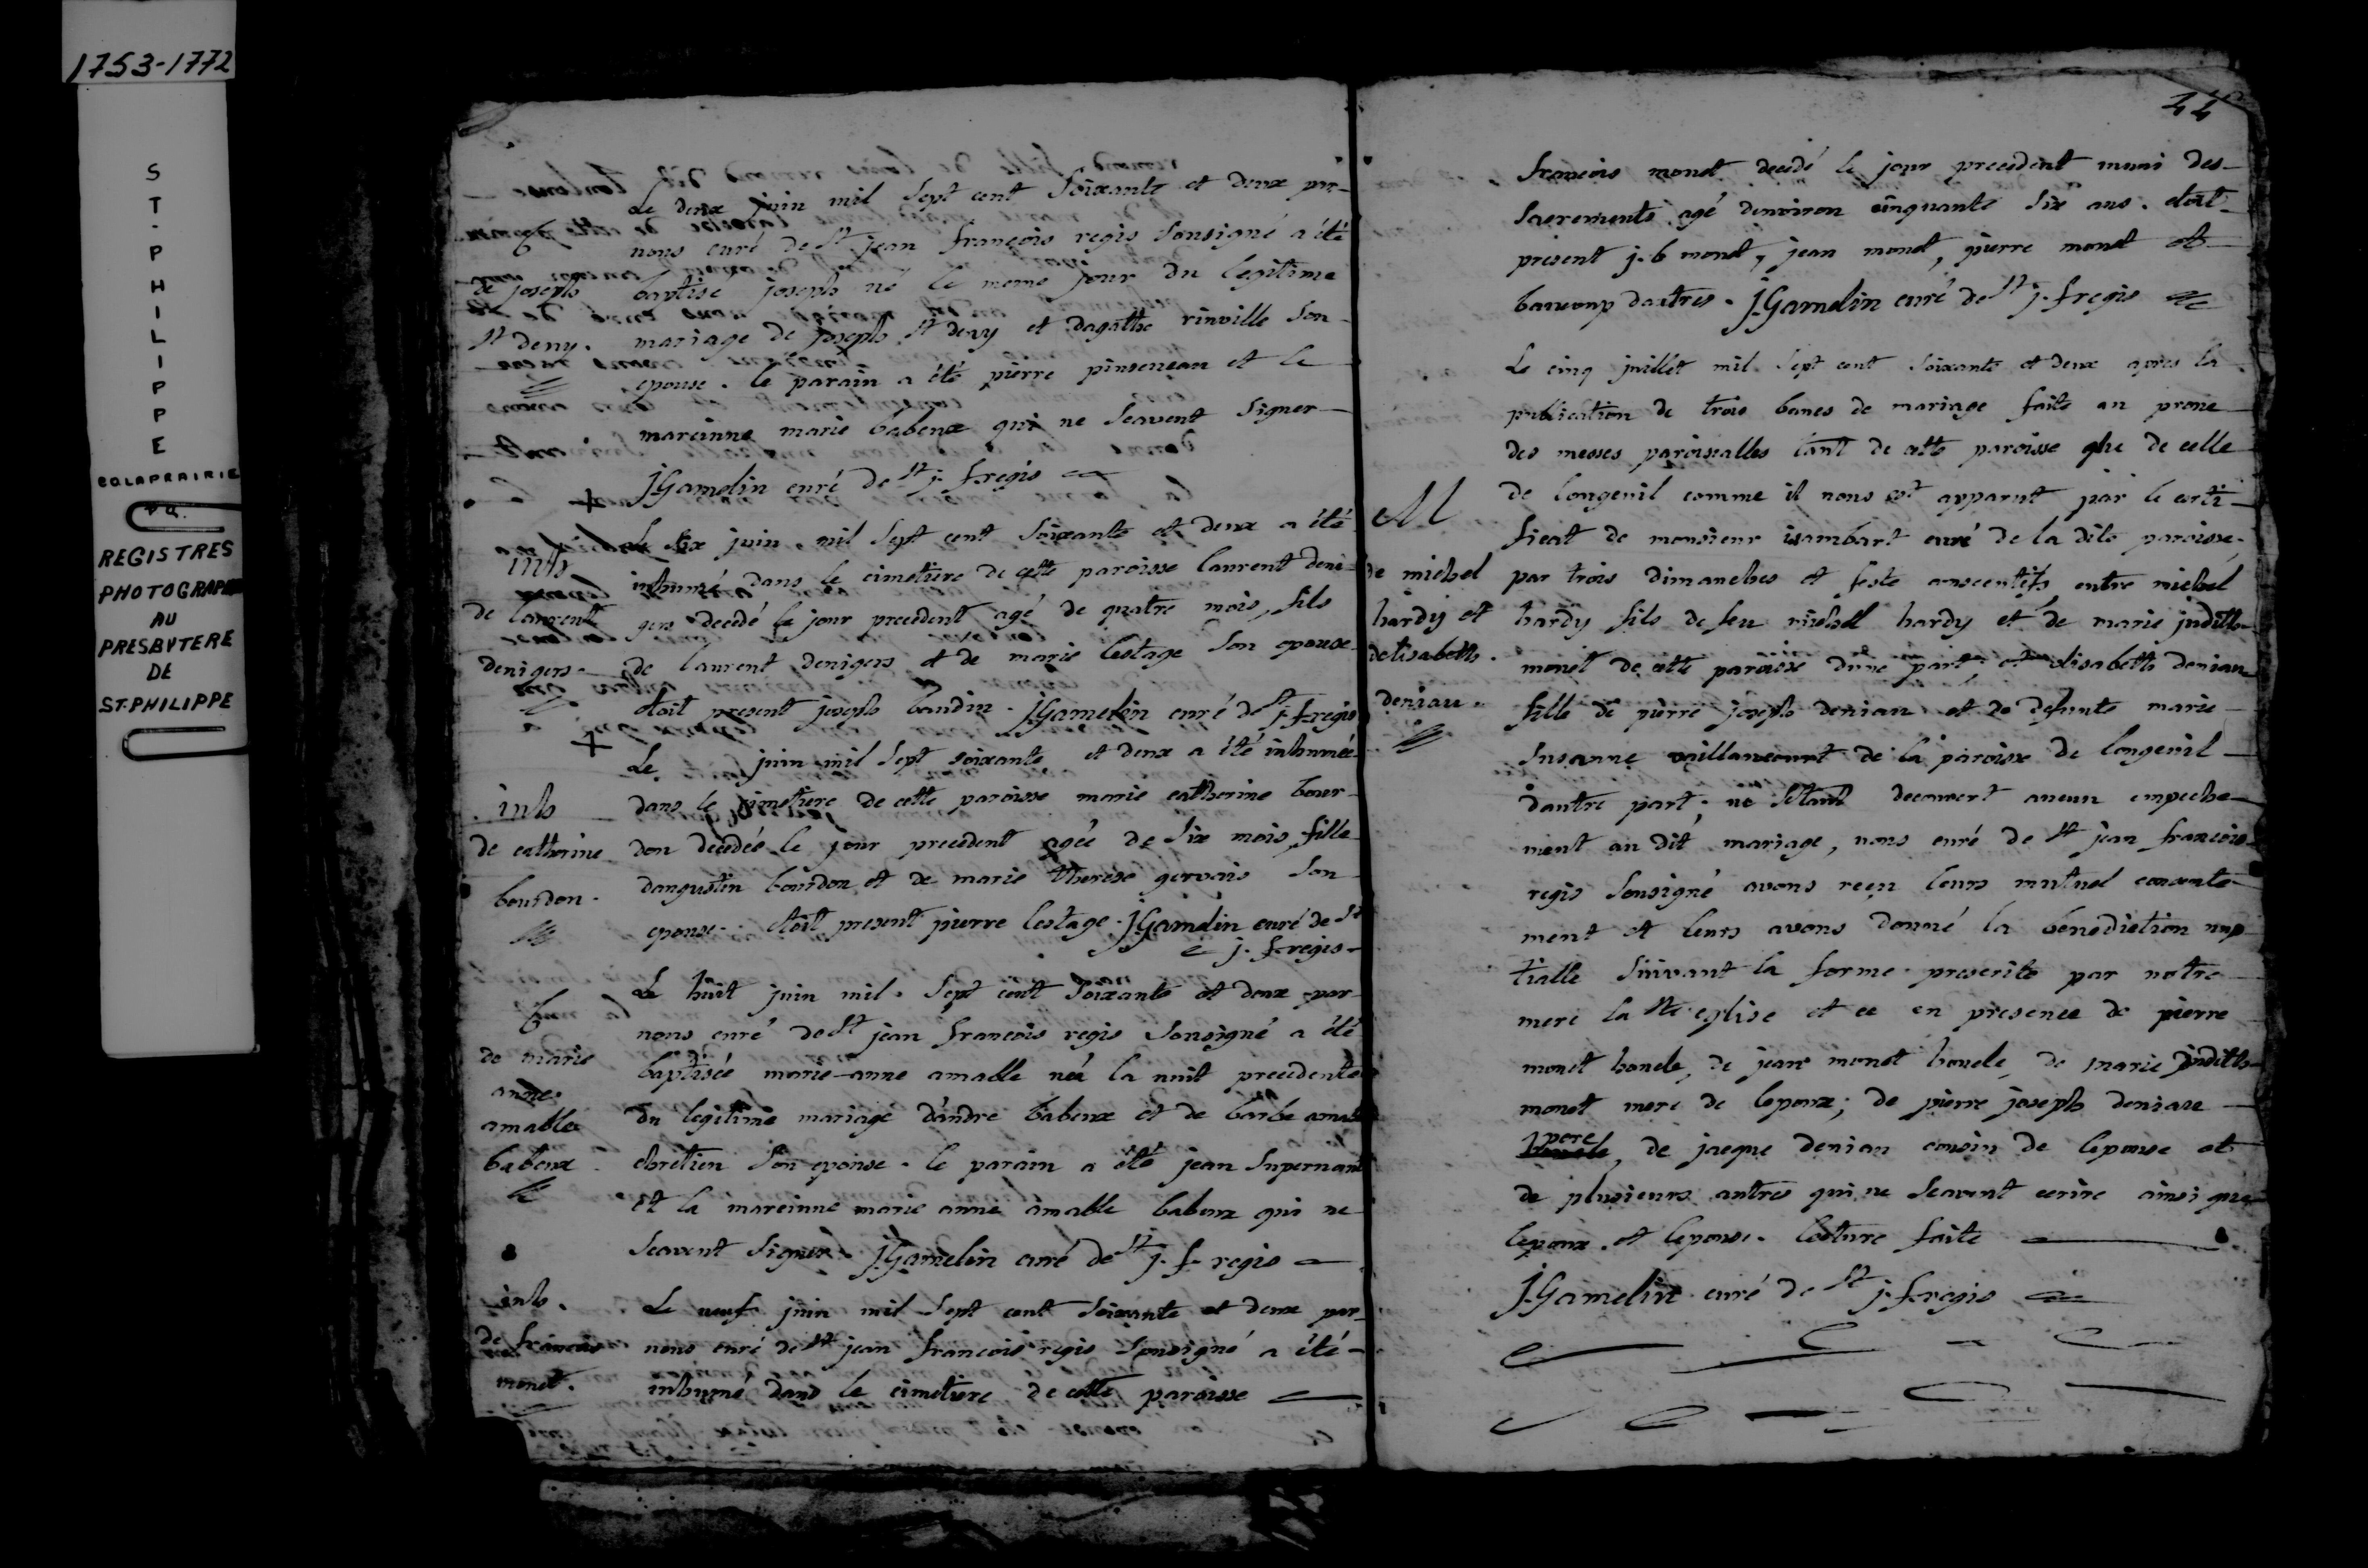 1753-1772
ST-PHILIPPE
COLAPRAIRIE
REGISTRES
PHOTOGRAPHI
AU
PRESBYTERE
DE
ST-PHILIPPE
Le deux juin mil Sept cent Soixante et deux par
B nous curé de St jean françois regis Sousigné a été
de joseph baptisé joseph né le meme jour du legitime
St deny. mariage de joseph St deny et dagathe rinville Son
epouse. le parain a été pierre pinseneau et la
mareinne marie babeux qui ne Scavent Signer
J Gamelin curé de St j. f. regis
Le Six juin mil Sept cent Soixante et deux a été
inh inhumé dans le cimetiere de cette paroisse laurent deni
de laurent gers decédé le jour precedent agé de quatre mois, fils
denigers de laurent denigers et de marie lestage Son epouse
étoit present joseph baudin. J Gamelin curé de St j. f. regis
Le juin mil Sept soixante et deux a été inhumée
inh dans le cimetiere de cette paroisse marie catherine bour
de catherine don decedée le jour precedent agée de Six mois, fille
bourdon. daugustin bourdon et de marie therese gervais Son
epouse. étoit present pierre lestage. J Gamelin curé de St
j. f. regis
Le huit juin mil Sept cent Soixante et deux par
B nous curé de St jean françois regis Sousigné a été
de marie baptisée marie-anne amable née la nuit precedente
anne du legitime mariage d'andre babeux et de barbe amable
amable
babeux chretien Son epouse. le parain a été jean Supernant
et la mareinne marie anne amable babeux qui ne
Scavent Signer. J Gamelin curé de St j. f. regis
inh. Le neuf juin mil Sept cent Soixante et deux par
de françois nous curé de St jean françois regis Sousigné a été
monet. inhumé dans le cimetiere de cette paroisse
44
françois monet decedé le jour precedent muni des
Sacrements agé denviron cinquante Six ans. étoit
present j. b monet, jean monet, pierre monet et
baucoup dautres. J. Gamelin curé de St j. f regis
Le cinq juillet mil Sept cent Soixante et deux apres la
publication de trois bancs de mariage faite au prone
des messes paroissalles tant de cette paroisse que de celle
M de longeuil comme il nous est apparut par le certi
ficat de monsieur isambart curé de la dite paroisse
de michel par trois dimanches et feste entre michel
hardy et hardy fils de feu michel hardy et de marie judith
delisabeth monet de cette paroisse dune part, et elisabeth deniau
deniau fille de pierre joseph deniau et de defunte marie
Susanne vaillancourt de la paroisse de longeuil
dautre part; ne Setant decouvert aucun empeche
ment au dit mariage, nous curé de St jean françois
regis Sousigné avons reçu leurs mutuel consente
ment et leurs avons donné la benediction nup
tialle Suivant la forme prescrite par notre
mere la Ste eglise et ce en presence de pierre
monet houcle, de jean monet houcle, de marie judith
monet mere de lepoux; de pierre joseph deniau
pere, de jacque deniau cousin de lepouse et
de plusieurs autres qui ne Scavent ecrire ainsi que
lepoux et lepouse. lecture faite
J. Gamelin curé de St j. f. regis